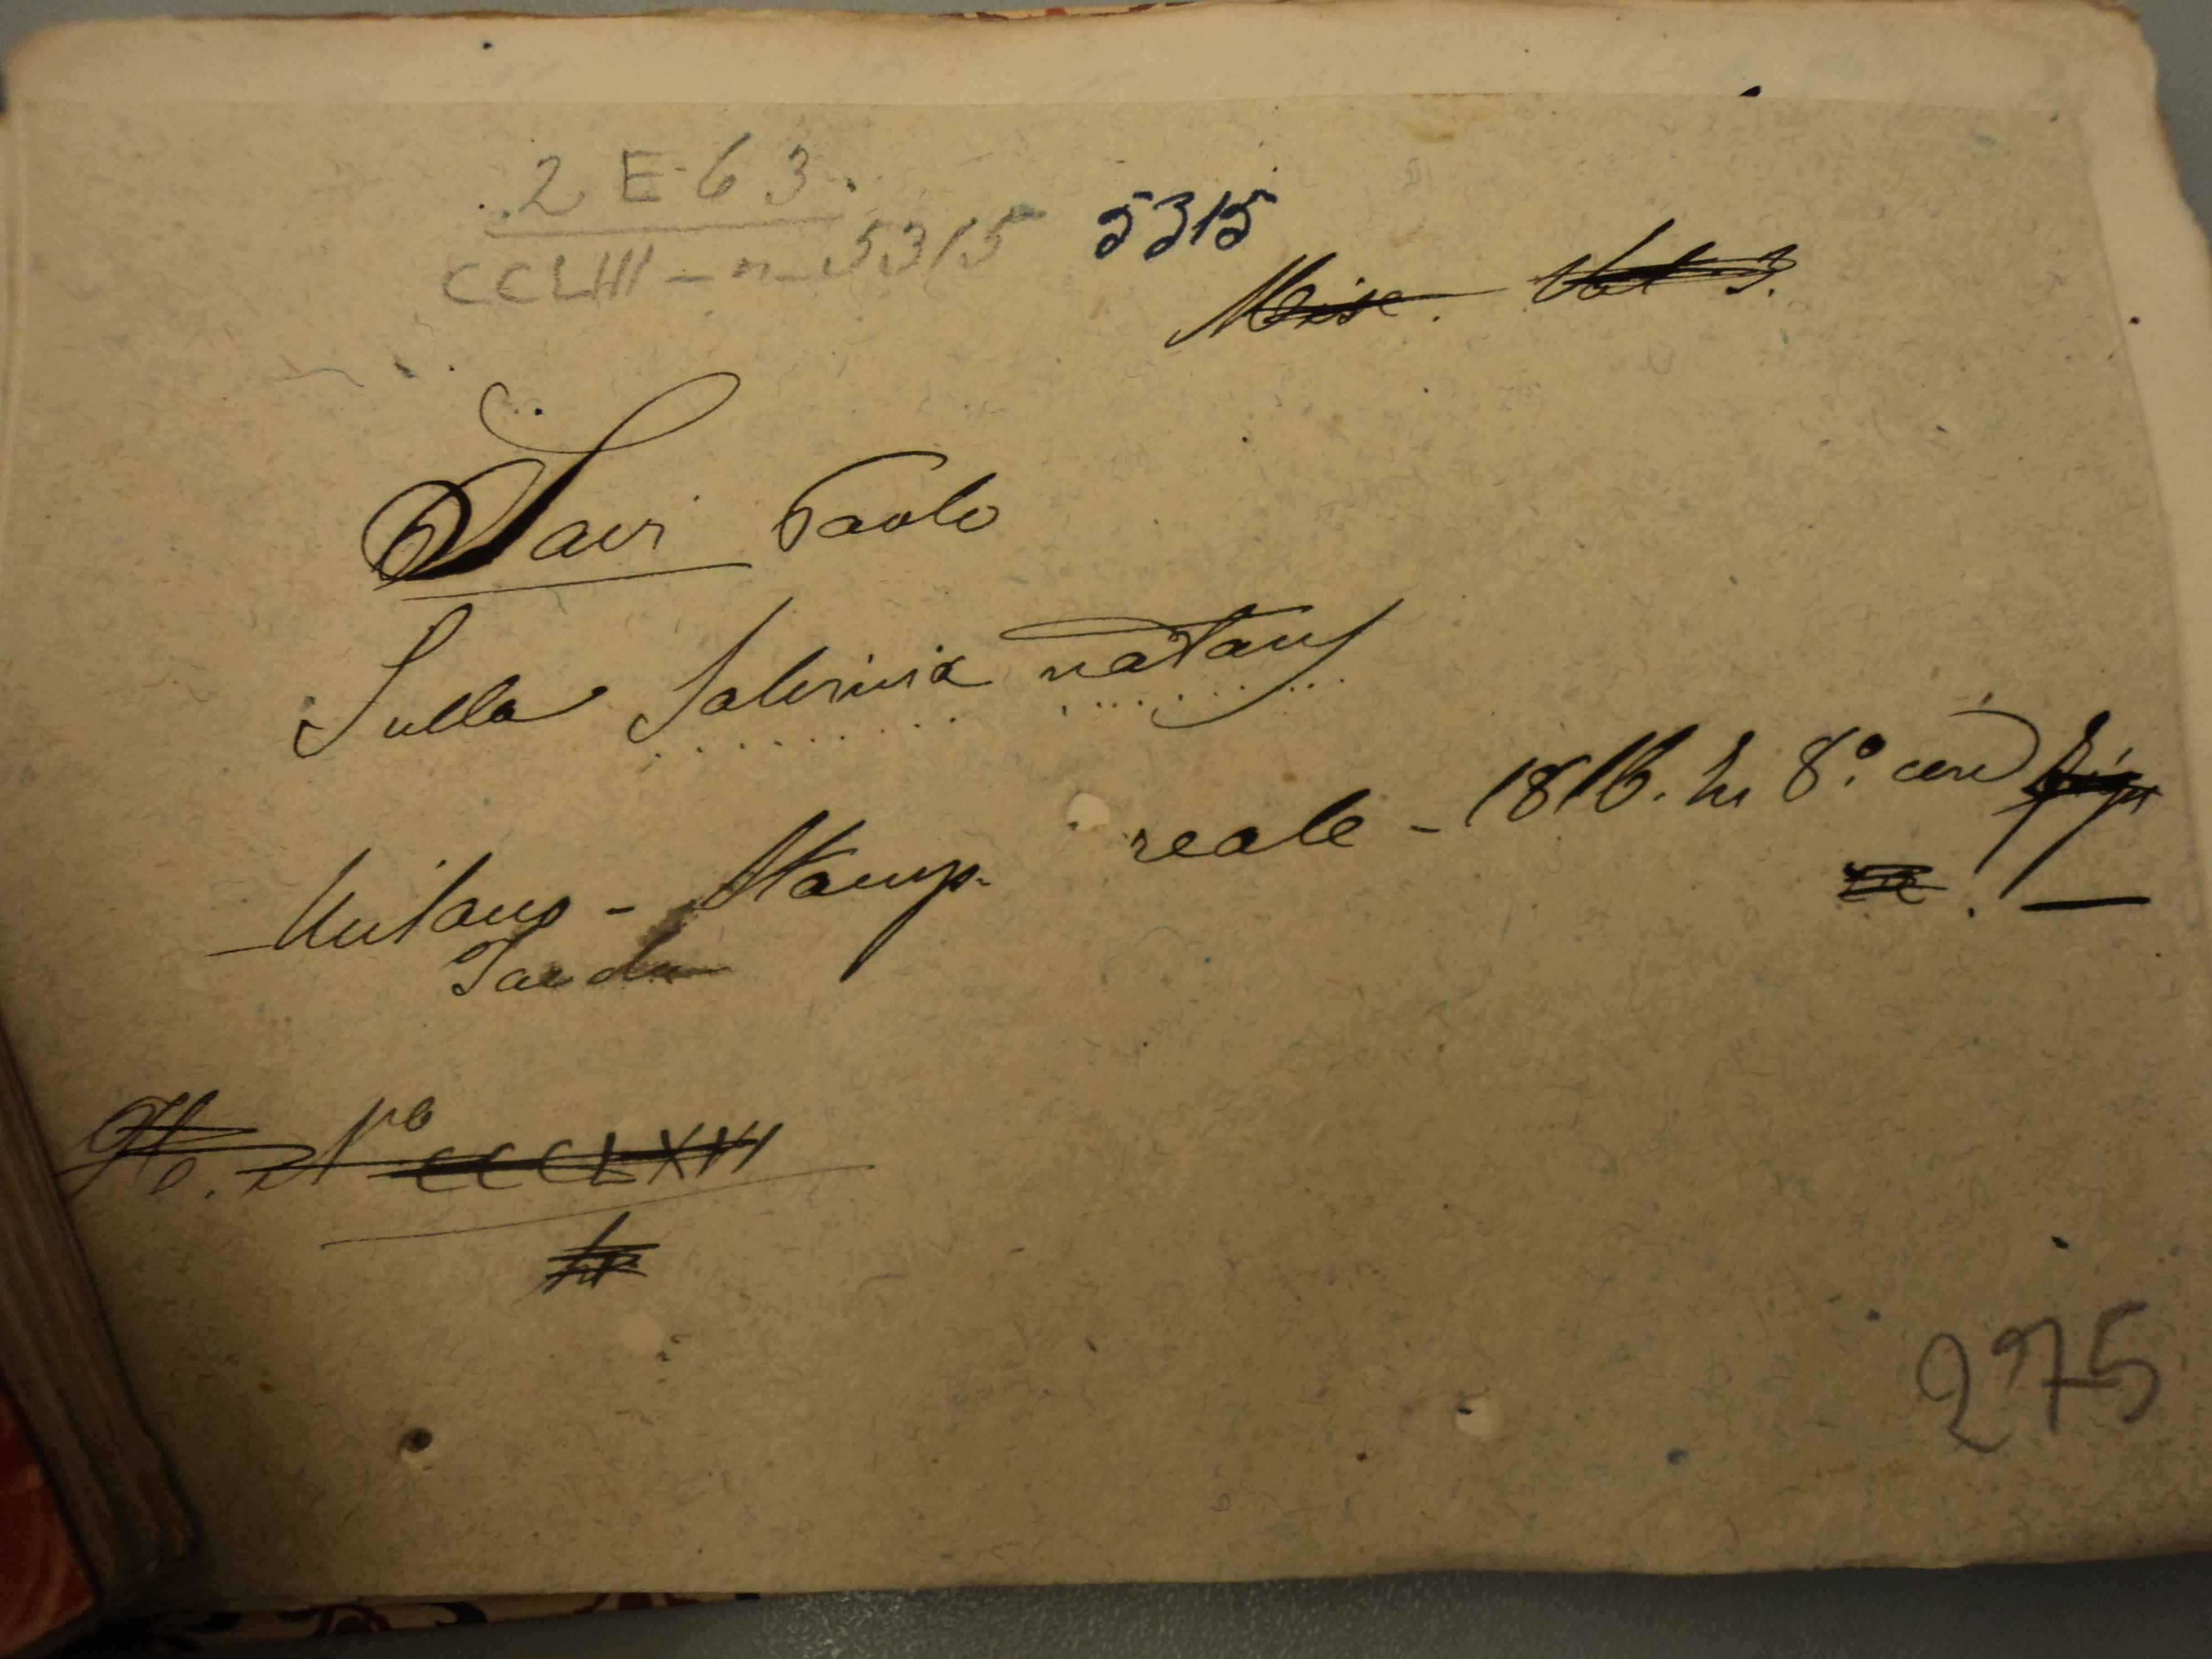 2 E 63.
CCLIII - n - 5315 5315
Misc. Vol 3.
Savi Paolo
Sulla Salvinia natans
Milano - Stamp. reale - 1816. In 8.° con
No CCCLXVI
275